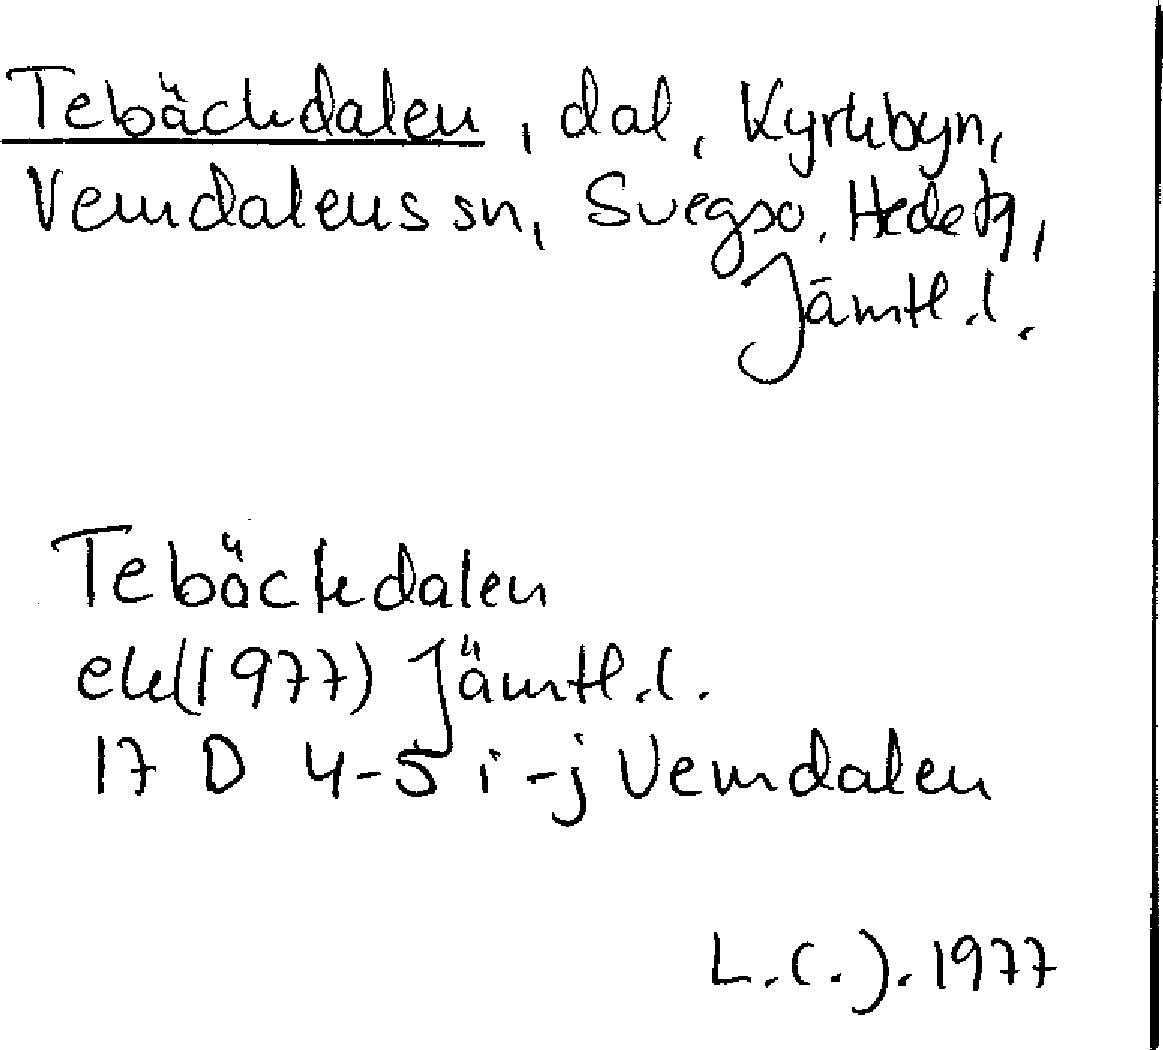 Tebäckdalen, dal, Kyrkbyn,
Vemdalens sn, Svegs so, Hede tg,
Jämtl.l.
Tebäckdalen
ek(1977) Jämtl.l.
17 D 4-5 i-j Vemdalen
1977